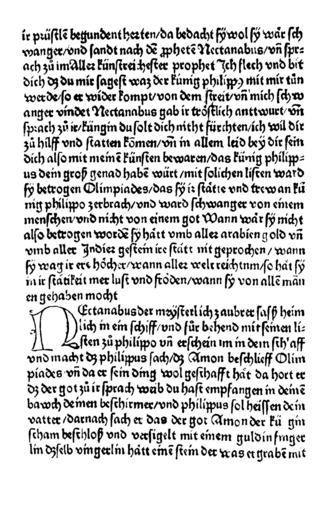 ir prüstle begundent herten/da bedacht sy wol sy wär sch
wanger/vnd sandt nach dē ꝓphetē Nectanabus/vn̄ spr-
ach zů im Aller künstreichester prophet Ich flech vnd bit
dich dz du mir sagest waz der künig philippꝰ mit mir tůn
werde/so er wider kompt/von dem streit/vn̄ mich schw
anger vindet Nectanabus gab ir tröstlich anttwurt/vn̄
sprach zů ir/künginn du solt dich nitht fürchten/ich wil dir
zů hilff vnd statten kōmen/vn̄ in allem leid bey dir sein
dich also mit meinē künsten bewaren/das künig philipp-
us dein groß genad haben würt/mit solichen listen ward
sy betrogen Olimpiades/das sy ir stätie vnd trew an kü
nig philippo zerbrach/vnd ward schwanger von einem
menschen/vnd nicht von einem got Wann wär sy nicht
also betrogen wordē sy hätt vmb aller arabien gold vn̄
vmb aller Indier gestein ire stätt nit geprochen/wann
sy wag ir ere höcher/wann aller welt reichtum/so hät sy
in ir stätikeit mer lust vnd fröden/wann sy von allē män
en gehaben mocht
NEctanabus der maysterlich zaubrer saß heim
lich in ein schiff/vnd für behend mit seinen li-
sten zů philippo vn̄ erschein im in dem schlaff
vnd macht dz philippus sach/dz Amon beschlieff Olim
piades/vn̄ da er sein ding wol geschafft hät da hort er
dz der got zů ir sprach weib du hast empfangen in deinē
bawch deinen beschirmer/vnd philippus sol heissen dein
vatter/darnach sach er das der got Amon der kü gin
scham beschloß vnd versigelt mit einem guldin finger
lin dzselb vingerlin hätt einē stein der was ergraben mit